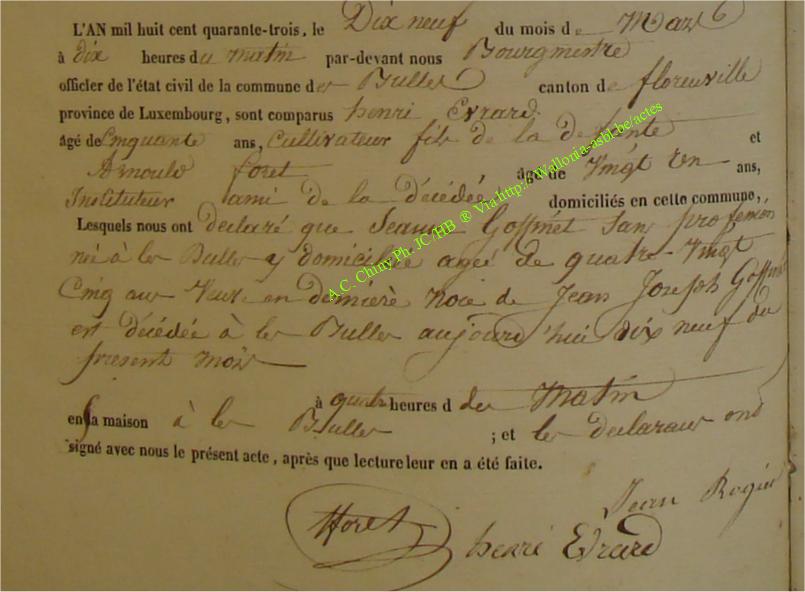 L'AN mil huit cent quarante-trois, le Dix neuf du mois de Mars
à dix heures du matin par-devant nous Bourgmestre
officier de l'état civil de la commune des Bulles canton de florenville
province de Luxembourg, sont comparus henri Evrard
âgé de Cinquante ans, Cultivateur fils de la defunte et
Arnould foret âgé de Vingt un ans,
Instituteur ami de la décédée domiciliés en cette commune,
Lesquels nous ont declaré que Jeanne Goffinet Sans profession
née à les Bulles y domiciliée agée de quatre-Vingt
Cinq ans Veuve en dernière noce de Jean Joseph Goffinet
est décédée à les Bulles aujourd'hui dix neuf du
present mois
à quatre heures d des Matin
en sa maison à les Bulles ; et les declarans ont
signé avec nous le présent acte, après que lecture leur en a été faite.
Jean Rogier
HForet henri Evrard
A.C. Chiny Ph. JC/HB ® Via http://Wallonia-asbl.be/actes